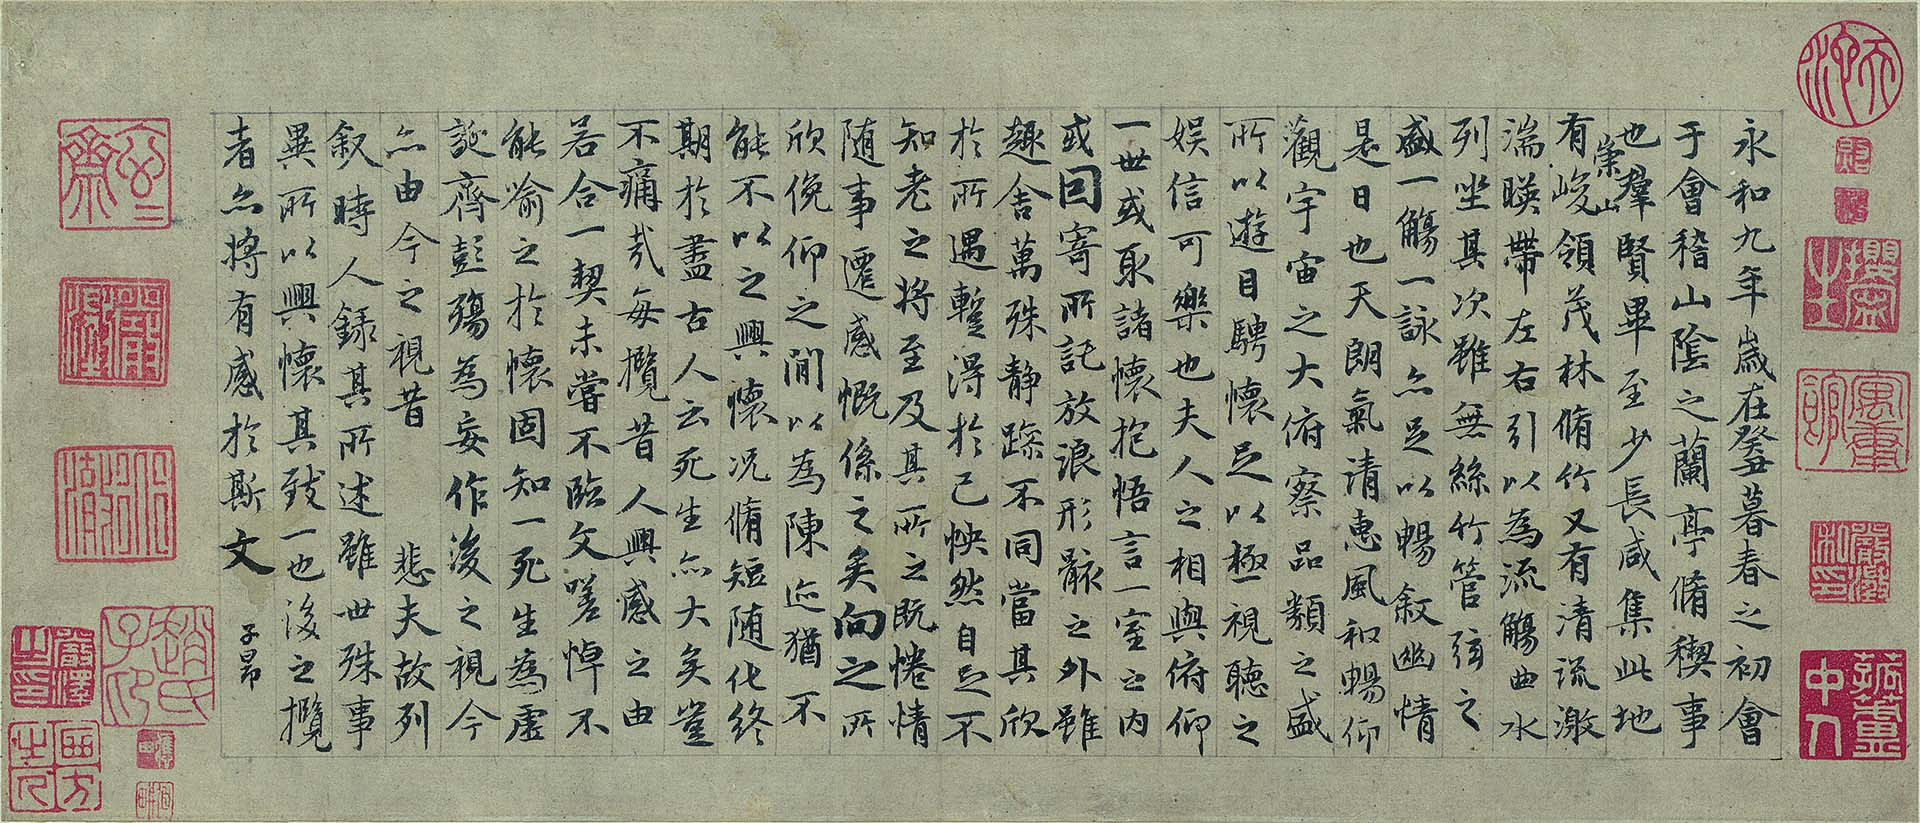 永和九年歲在癸丑暮春之初會
于會稽山陰之蘭亭脩稧事
也羣賢畢至少長咸集此地
有崇山峻領茂林脩竹又有清流激
湍暎帶左右引以為流觴曲水
列坐其次雖無絲竹管弦之
盛一觴一詠亦足以暢敘幽情
是日也天朗氣清惠風和暢仰
觀宇宙之大俯察品類之盛
所以遊目騁懷足以極視聽之
娛信可樂也夫人之相與俯仰
一世或取諸懷抱悟言一室之內
或因寄所託放浪形骸之外雖
趣舍萬殊静躁不同當其欣
於所遇蹔得於己怏然自足不
知老之將至及其所之既惓情
随事遷感慨係之矣向之所
欣俛仰之閒以為陳迹猶不
能不以之興懷況脩短随化終
期於盡古人云死生亦大矣豈
不痛哉每攬昔人興感之由
若合一契未嘗不臨文嗟悼不
能喻之於懷固知一死生為虛
誕齊彭殤為妄作後之視今
亦由今之視昔 悲夫故列
叙時人錄其所述雖世殊事
異所以興懷其致一也後之攬
者亦將有感於斯文
子昂